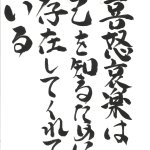 喜怒哀楽は
己を知る為に
存在してくれて
いる